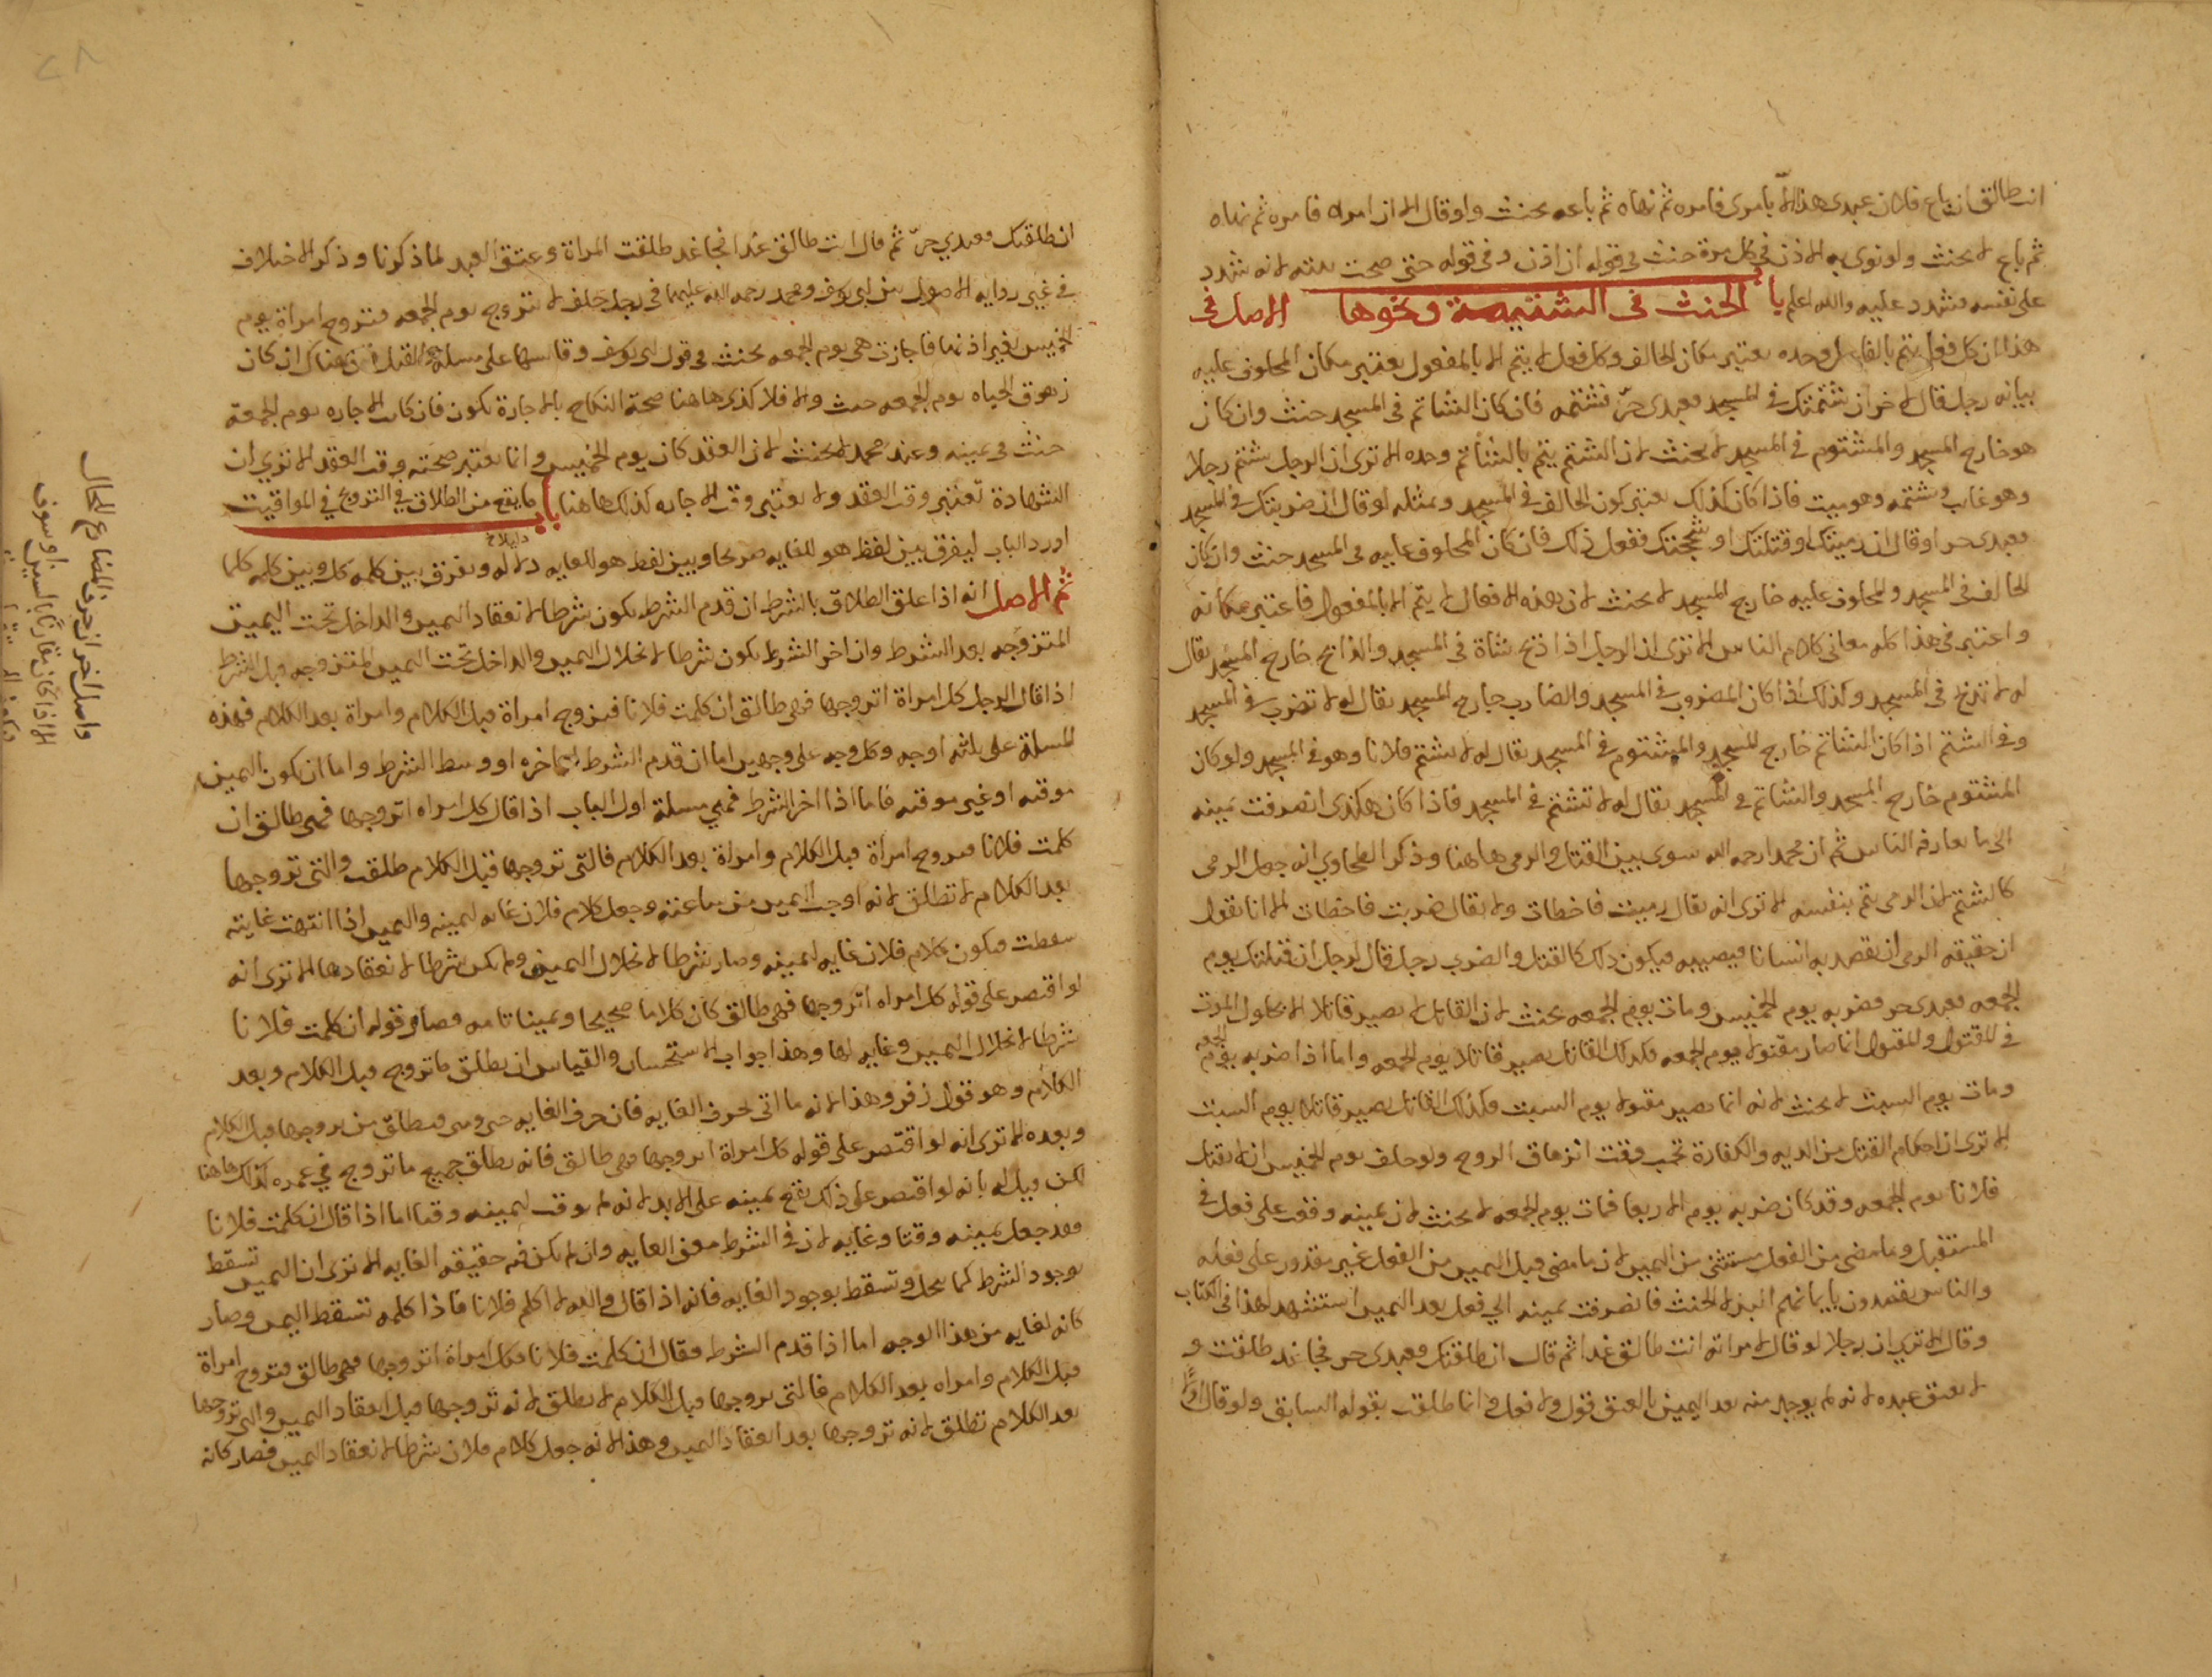 انت طالق ان باع فلان عبدى هذا الا بامرى فامره ثم نهاه ثم باعه يحنث ولو قال الا ان امره فامره ثم نهاه
ثم باع لا يحنث ولو نوى به الاذن فى كل مرة حنث فى قوله الا ان اذن وفى قوله حتى صحت نيته لانه شدد
على نفسه فشدد عليه والله اعلم باب الحنث فى الشتيمة ونحوها الاصل فى
هذا ان كل فعل يتم بالفاعل وحده يعتبر مكان الحالف وكل فعل لا يتم الا بالمفعول يعتبر مكان المحلوف عليه
بيانه رجل قال لاخر ان شتمتك فى المسجد فعبدى حرّ فشتمه فان كان الشاتم فى المسجد حنث وان كان
هو خارج المسجد والمشتوم فى المسجد لا يحنث لان الشتم يتم بالشاتم وحده الا ترى ان الرجل شتم رجلا
وهو غايب وشتمه وهو ميت فاذا كان كذلك يعتبر كون الحالف فى المسجد وبمثله لو قال ان ضربتك فى المسجد
فعبدى حر او قال ان رميتك او قتلتك او شججتك ففعل ذلك فان كان المحلوف عليه فى المسجد حنث وان كان
الحالف فى المسجد والمحلوف عليه خارج المسجد لا يحنث لان هذه الافعال لا يتم الا بالمفعول فاعتبر مكانه
واعتبر فى هذا كله معانى كلام الناس الا ترى ان الرجل اذا ذبح شاة فى المسجد والذابح خارج المسجد يقال
له لا تذبح فى المسجد وكذلك اذا كان المضروب فى المسجد والضارب خارج المسجد يقال له لا تضرب فى المسجد
وفى الشتم اذا كان الشاتم خارج المسجد والمشتوم فى المسجد يقال له لا تشتم فلانا وهو فى المسجد ولو كان
المشتوم خارج المسجد والشاتم فى المسجد يقال له لا تشتم فى المسجد فاذا كان هكذى انصرفت يمينه
الى ما يعارفه الناس ثم ان محمدا رحمه الله سوى بين القتل والرمى هاهنا وذكر الطحاوي انه جعل الرمى
كالشتم لان الرمى يتم بنفسه الا ترى انه يقال رميت فاخطات ولا يقال ضربت فاخطات الا انا نقول
ان حقيقه الرمى ان يقصد به انسانا فيصيبه فيكون ذلك كالقتل والضرب رجل قال لرجل ان قتلتك يوم
الجمعه فعبدى حر فضربه يوم الخميس ومات يوم الجمعه يحنث لان القاتل لا يصير قاتلا الا بحلول الموت
فى المقتول والمقتول انما صار مقتولا يوم الجمعه فكذلك القاتل يصير قاتلا يوم الجمعه واما اذا ضربه يوم الجمعه
ومات يوم السبت لا يحنث لانه انما يصير مقتولا يوم السبت فكذلك القاتل يصير قاتلا يوم السبت
الا ترى ان احكام القتل من الديه والكفارة تجب وقت انزهاق الروح ولو حلف يوم الخميس ان لا يقتل
فلانا يوم الجمعه وقد كان ضربه يوم الاربعا فمات يوم الجمعه لا يحنث لان يمينه وقعت على فعل فى
المستقبل وما مضى من الفعل مستثنى من اليمين لان ما مضى قبل اليمين من الفعل غير مقدور على فعله
والناس يقصدون بايمانهم البر لا الحنث فانصرفت يمينه الي فعل بعد اليمين استشهد لهذا فى الكتاب
وقال الا تري ان رجلا لو قال لامراته انت طالق غدا ثم قال ان طلقتك فعبدى حر فجا غد طلقت و
لا يعتق عبده لانه لم يوجد منه بعد اليمين بالعتق قول ولا فعل وانما طلقت بقوله السابق ولو قال اولا
ان طلقتك فعبدي حرّ ثم قال انت طالق غدا فجا غد طلقت المراة وعتق العبد لما ذكرنا وذكر الاختلاف
فى غير روايه الاصول بين ابى يوسف ومحمد رحمه الله عليهما فى رجل حلف لا يتزوج يوم الجمعه فتزوج امراة يوم
الخميس بغير اذنها فاجازت هى يوم الجمعه يحنث فى قول ابى يوسف وقاسها على مسله القتل ان هناك ان كان
زهوق الحياه يوم الجمعه حنث والا فلا كذى هاهنا صحة النكاح بالاجازة تكون فان كانت الاجازه يوم الجمعة
حنث فى يمينه وعند محمد لا يحنث لان العقد كان يوم الخميس وانما يعتبر صحته وقت العقد الا تري ان
الشهادة تعتبر وقت العقد ولا يعتبر وقت الاجازه كذلك هاهنا باب ما يقع من الطلاق فى التزويج فى المواقيت
اورد الباب ليفرق بين لفظ هو للغايه صريحا وبين لفظ هو للغايه دلاله ويفرق بين كلمه كل وبين كلمه كلما
ثم الاصل انه اذا علق الطلاق بالشرط ان قدم الشرط يكون شرطا لانعقاد اليمين والداخل تحت اليمين
المتزوجه بعد الشرط وان اخر الشرط يكون شرطا لانحلال اليمين والداخل تحت اليمين المتزوجه قبل الشرط
اذا قال الرجل كل امراة اتزوجها فهى طالق ان كلمت فلانا فيزوج امراة قبل الكلام وامراة بعد الكلام فهذه
المسلة على ثلثه اوجه وكل وجه على وجهين اما ان قدم الشرط او اخره او وسط الشرط واما ان تكون اليمين
موقته او غير موقته فاما اذا اخر الشرط فهي مسلة اول الباب اذا قال كل امراه اتزوجها فهى طالق ان
كلمت فلانا فتزوج امراة قبل الكلام وامراة بعد الكلام فالتى تزوجها قبل الكلام طلقت والتى تزوجها
بعد الكلام لا تطلق لانه اوجب اليمين من ساعته وجعل كلام فلان غايه ليمينه واليمين اذا انتهت غايته
سقطت فيكون كلام فلان غايه ليمينه وصار شرطا لانحلال اليمين ولم يكن شرطا لانعقادها الا ترى انه
لو اقتصر على قوله كل امراه اتزوجها فهى طالق كان كلاما صحيحا ويمينا تامه فصار قوله ان كلمت فلانا
شرطا لانحلال اليمين وغايه لها وهذا جواب الاستحسان والقياس ان يطلق ما تزوج قبل الكلام وبعد
الكلام وهو قول زفر وهذا لانه ما اتى بحرف الغايه فان حرف الغايه حتى ومتى فيطلق من تزوجها قبل الكلام
وبعده الا ترى انه لو اقتصر على قوله كل امراة اتزوجها فهى طالق فانه يطلق جميع ما تزوج في عمره كذلك هاهنا
لكن قيل له بانه لو اقتصر على ذلك يقع يمينه على الابد لانه لم يوقت ليمينه وقتا اما اذا قال ان كلمت فلانا
فقد جعل ليمينه وقتا وغايه لان فى الشرط معنى الغايه وان لم يكن فيه حقيقه الغايه الا ترى ان اليمين تسقط
بوجود الشرط كما ينحل وتسقط بوجود الغايه فانه اذا قال والله لا اكلم فلانا فاذا كلمه تسقط اليمين وصار
كانه لغايه من هذا الوجه اما اذا قدم الشرط فقال ان كلمت فلانا فكل امراة اتزوجها فهى طالق فتزوج امراة
قبل الكلام وامراه بعد الكلام فالتى تزوجها قبل الكلام لا يطلق لانه تزوجها قبل انعقاد اليمين والتى تزوجها
بعد الكلام تطلق لانه تزوجها بعد انعقاد اليمين وهذا لانه جعل كلام فلان شرطا لانعقاد اليمين فصار كانه
واصل اخر ان حرف المضارع للحال
الا اذا كان مقارنا بالسين او سوف